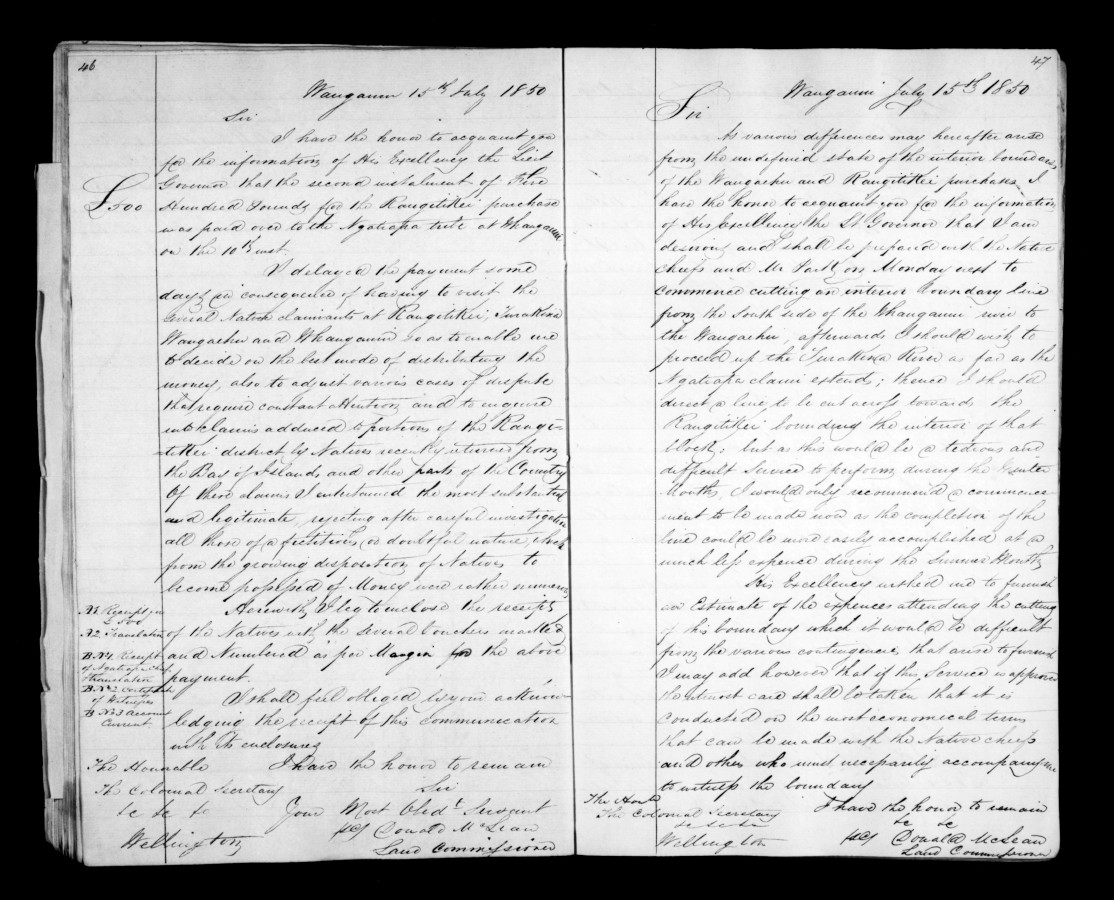 46
Wanganui 15th July 1850
Sir
I have the honor to acquaint you
for the information of His Excellency the Lieut
Governor that the second instalment of Five
£500
Hundred Pounds for the Rangitikei purchase
was paid over to the Ngatiapa tribe at Whanganui
on the 10th inst.
I delayed the payment some
days in consequence of having to visit the
several Native claimants at Rangitikei, Turakina
Wangaehu and Whanganui so as to enable me
to decide on the best mode of distributing the
money, also to adjust various cases of dispute
that require constant attention and to enquire
into claims adduced to portions of the Rangi-
tikei district by Natives recently returned from
the Bay of Islands, and other parts of the Country
Of these claims I entertained the most substantial
and legitimate, rejecting after careful investigation
all those of a fictitious, or doubtful nature, which
from the growing disposition of Natives to
become possessed of Money were rather numerous
Herewith, I beg to enclose the receipts
of the Natives with the several vouchers marked
and Numbered as per Margin for the above
payment.
A1 Receipt for
£500
A2 Translation
B No 1 Receipt
of Ngatiapa Chiefs
translation
B No 2 Certificate
of Witnesses
B No 3 Account
Current.
I shall feel obliged by your acknow-
ledging the receipt of this Communication
with its enclosures
I have the honor to remain
Sir
Your Most Obedt Servant
Donald McLean
Land Commissioner
The Honorable
The Colonial Secretary
&c &c &c
Wellington
47
Wanganui July 15th 1850
Sir
As various differences may hereafter arise
from the undefined state of the interior boundary
of the Wangaehu and Rangitikei purchases I
have the honor to acquaint you for the information
of His Excellency the Lt. Governor that I am
desirous and shall be prepared with the Native
chiefs and Mr Park on Monday next to
commence cutting an interior boundary line
from the South side of the Whanganui river to
the Wangaehu, afterwards I should wish to
proceed up the Turakina River as far as the
Ngatiapa claims extend; thence I should
direct a line to be cut across towards the
Rangitikei bounding the interior of that
block; but as this would be a tedious and
difficult Service to perform during the Winter
Months, I would only recommend a commence-
ment to be made now as the completion of the
line could be more easily accomplished at a
much less expence during the Summer Months
His Excellency wished me to furnish
an Estimate of the expences attending the cutting
of this boundary which it would be difficult
from the various contingencies that arise to furnish
I may add however that if this Service is approved
the utmost care shall be taken that it is
conducted on the most economical terms
that can be made with the Native chiefs
and others who must necessarily accompany me
to witness the boundary
I have the honor to remain
&c &c
Donald McLean
Land Commissioner
The Honble
The Colonial Secretary
&c &c &c
Wellington